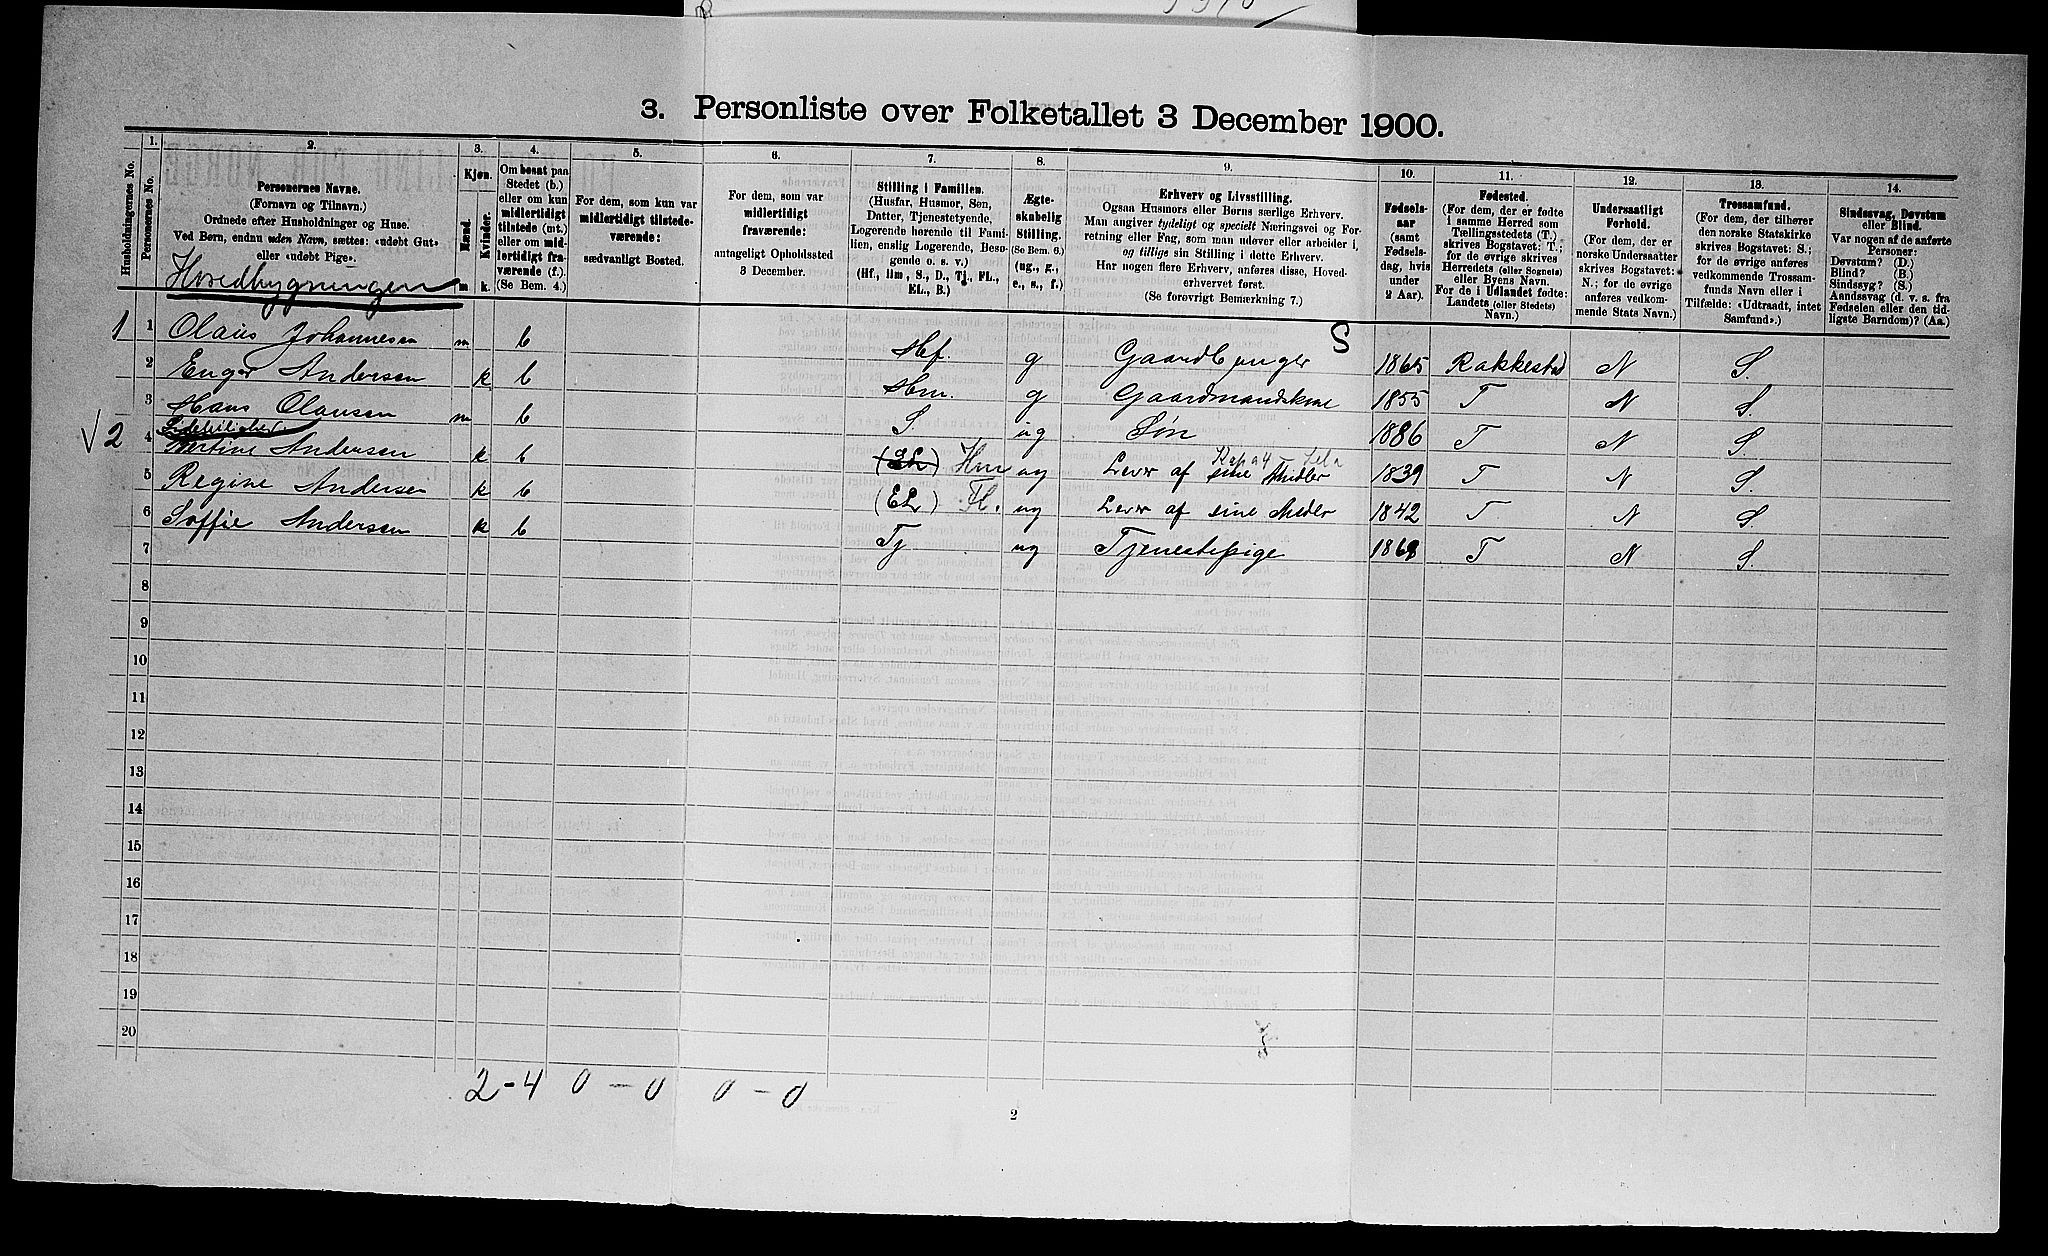 3. Personliste over Folketallet 3 December 1900.
Husholdningernes No.
1. Personernes No.
2.
Personernes Navne.
(Fornavn og Tilnavn.)
Ordnede efter Husholdninger og Huse.
Ved Børn, endnu uden Navn, sættes: «udøbt Gut»
eller «udøbt Pige».
3.
Kjøn.
Mænd.
Kvinder.
m.
k.
4.
Om bosat paa
Stedet (b.)
eller om kun
midlertidigt
tilstede (mt.)
eller om mid-
lertidigt fra-
værende (f.).
(Se Bem. 4.)
5.
For dem, som kun var
midlertidigt tilstede-
værende:
sædvanligt Bosted.
6.
For dem, som var
midlertidigt
fraværende:
antageligt Opholdssted
3 December.
7.
Stilling i Familien.
(Husfar, Husmor, Søn,
Datter, Tjenestetyende,
Logerende hørende til Fami-
lien, enslig Logerende, Besø-
gende o. s. v.)
(Hf., Hm., S., D., Tj., FL.,
EL., B.)
8.
Ægte-
skabelig
Stilling.
(Se Bem. 6.)
(ug., g.,
e., s., f.)
9.
Erhverv og Livsstilling.
Ogsaa Husmors eller Børns særlige Erhverv.
Man angiver tydeligt og specielt Næringsvei og For-
retning eller Fag, som man udøver eller arbeider i,
og tillige sin Stilling i dette Erhverv.
Har nogen flere Erhverv, anføres disse, Hoved-
erhvervet først.
(Se forøvrigt Bemerkning 7.)
10.
Fødsels-
aar
(samt
Fødsels-
dag, hvis
under
2 Aar).
11.
Fødested.
(For dem, der er fødte
i samme Herred som
Tællingsstedets (T.)
skrives Bogstavet: T.;
for de øvrige skrives
Herredets (eller Sognets)
eller Byens Navn.
For de i Udlandet fødte:
Landets (eller Stedets)
Navn.)
12.
Undersaatligt
Forhold.
(For dem, der er
norske Undersaatter
skrives Bogstavet:
N.; for de øvrige
anføres vedkom-
mende Stats Navn.)
13.
Trossamfund.
(For dem, der tilhører
den norske Statskirke
skrives Bogstavet: S.;
for de øvrige anføres
vedkommende Trossam-
funds Navn eller i
Tilfælde: «Udtraadt, intet
Samfund».)
14.
Sindssvag, Døvstum
eller Blind.
Var nogen af de anførte
Personer:
Døvstum? (D.)
Blind? (B.)
Sindssyg? (S.)
Aandssvag (d. v. s. fra
Fødselen eller den tid-
ligste Barndom)? (Aa.)
Hovedbygningen
S
1 1 Olaus Johannesen m b Hf. g Gaardbruger 1865 Rakkestad N S.
2 Enger Andersen k b Hm. g Gaardmandskone 1855 T N S.
3 Hans Olausen m b S. ug Søn 1886 T N S.
√ 2 4 Martine Andersen k b (EL) Hm ug Lever af sine Midler 1839 T N S.
5 Regine Andersen k b (EL) Fl. ug Lever af sine Midler 1842 T N S.
6 Soffie Andersen k b Tj ug Tjenestepige 1868 T N S.
7
8
9
10
11
12
13
14
15
16
17
18
19
20
2-4 0-0 0-0
2